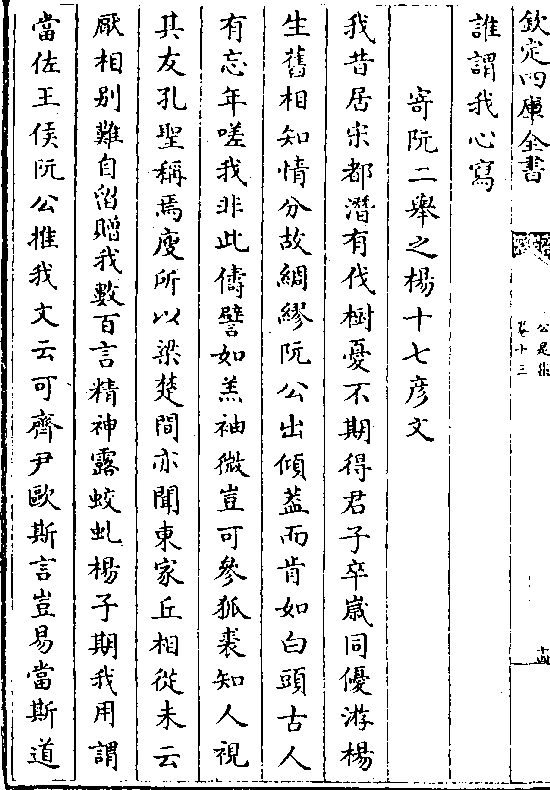 欽定四庫全書
公是集
卷十三
十四
誰謂我心寫
寄阮二舉之楊十七彦文
我昔居宋都潛有伐樹憂不期得君子卒嵗同優游楊
生舊相知情分故綢繆阮公出傾葢而肯如白頭古人
有忘年嗟我非此儔譬如羔袖微豈可參狐裘知人視
其友孔聖稱焉廋所以梁楚間亦聞東家丘相從未云
厭相别難自留贈我數百言精神露蛟虬楊子期我用謂
當佐王侯阮公推我文云可齊尹歐斯言豈易當斯道